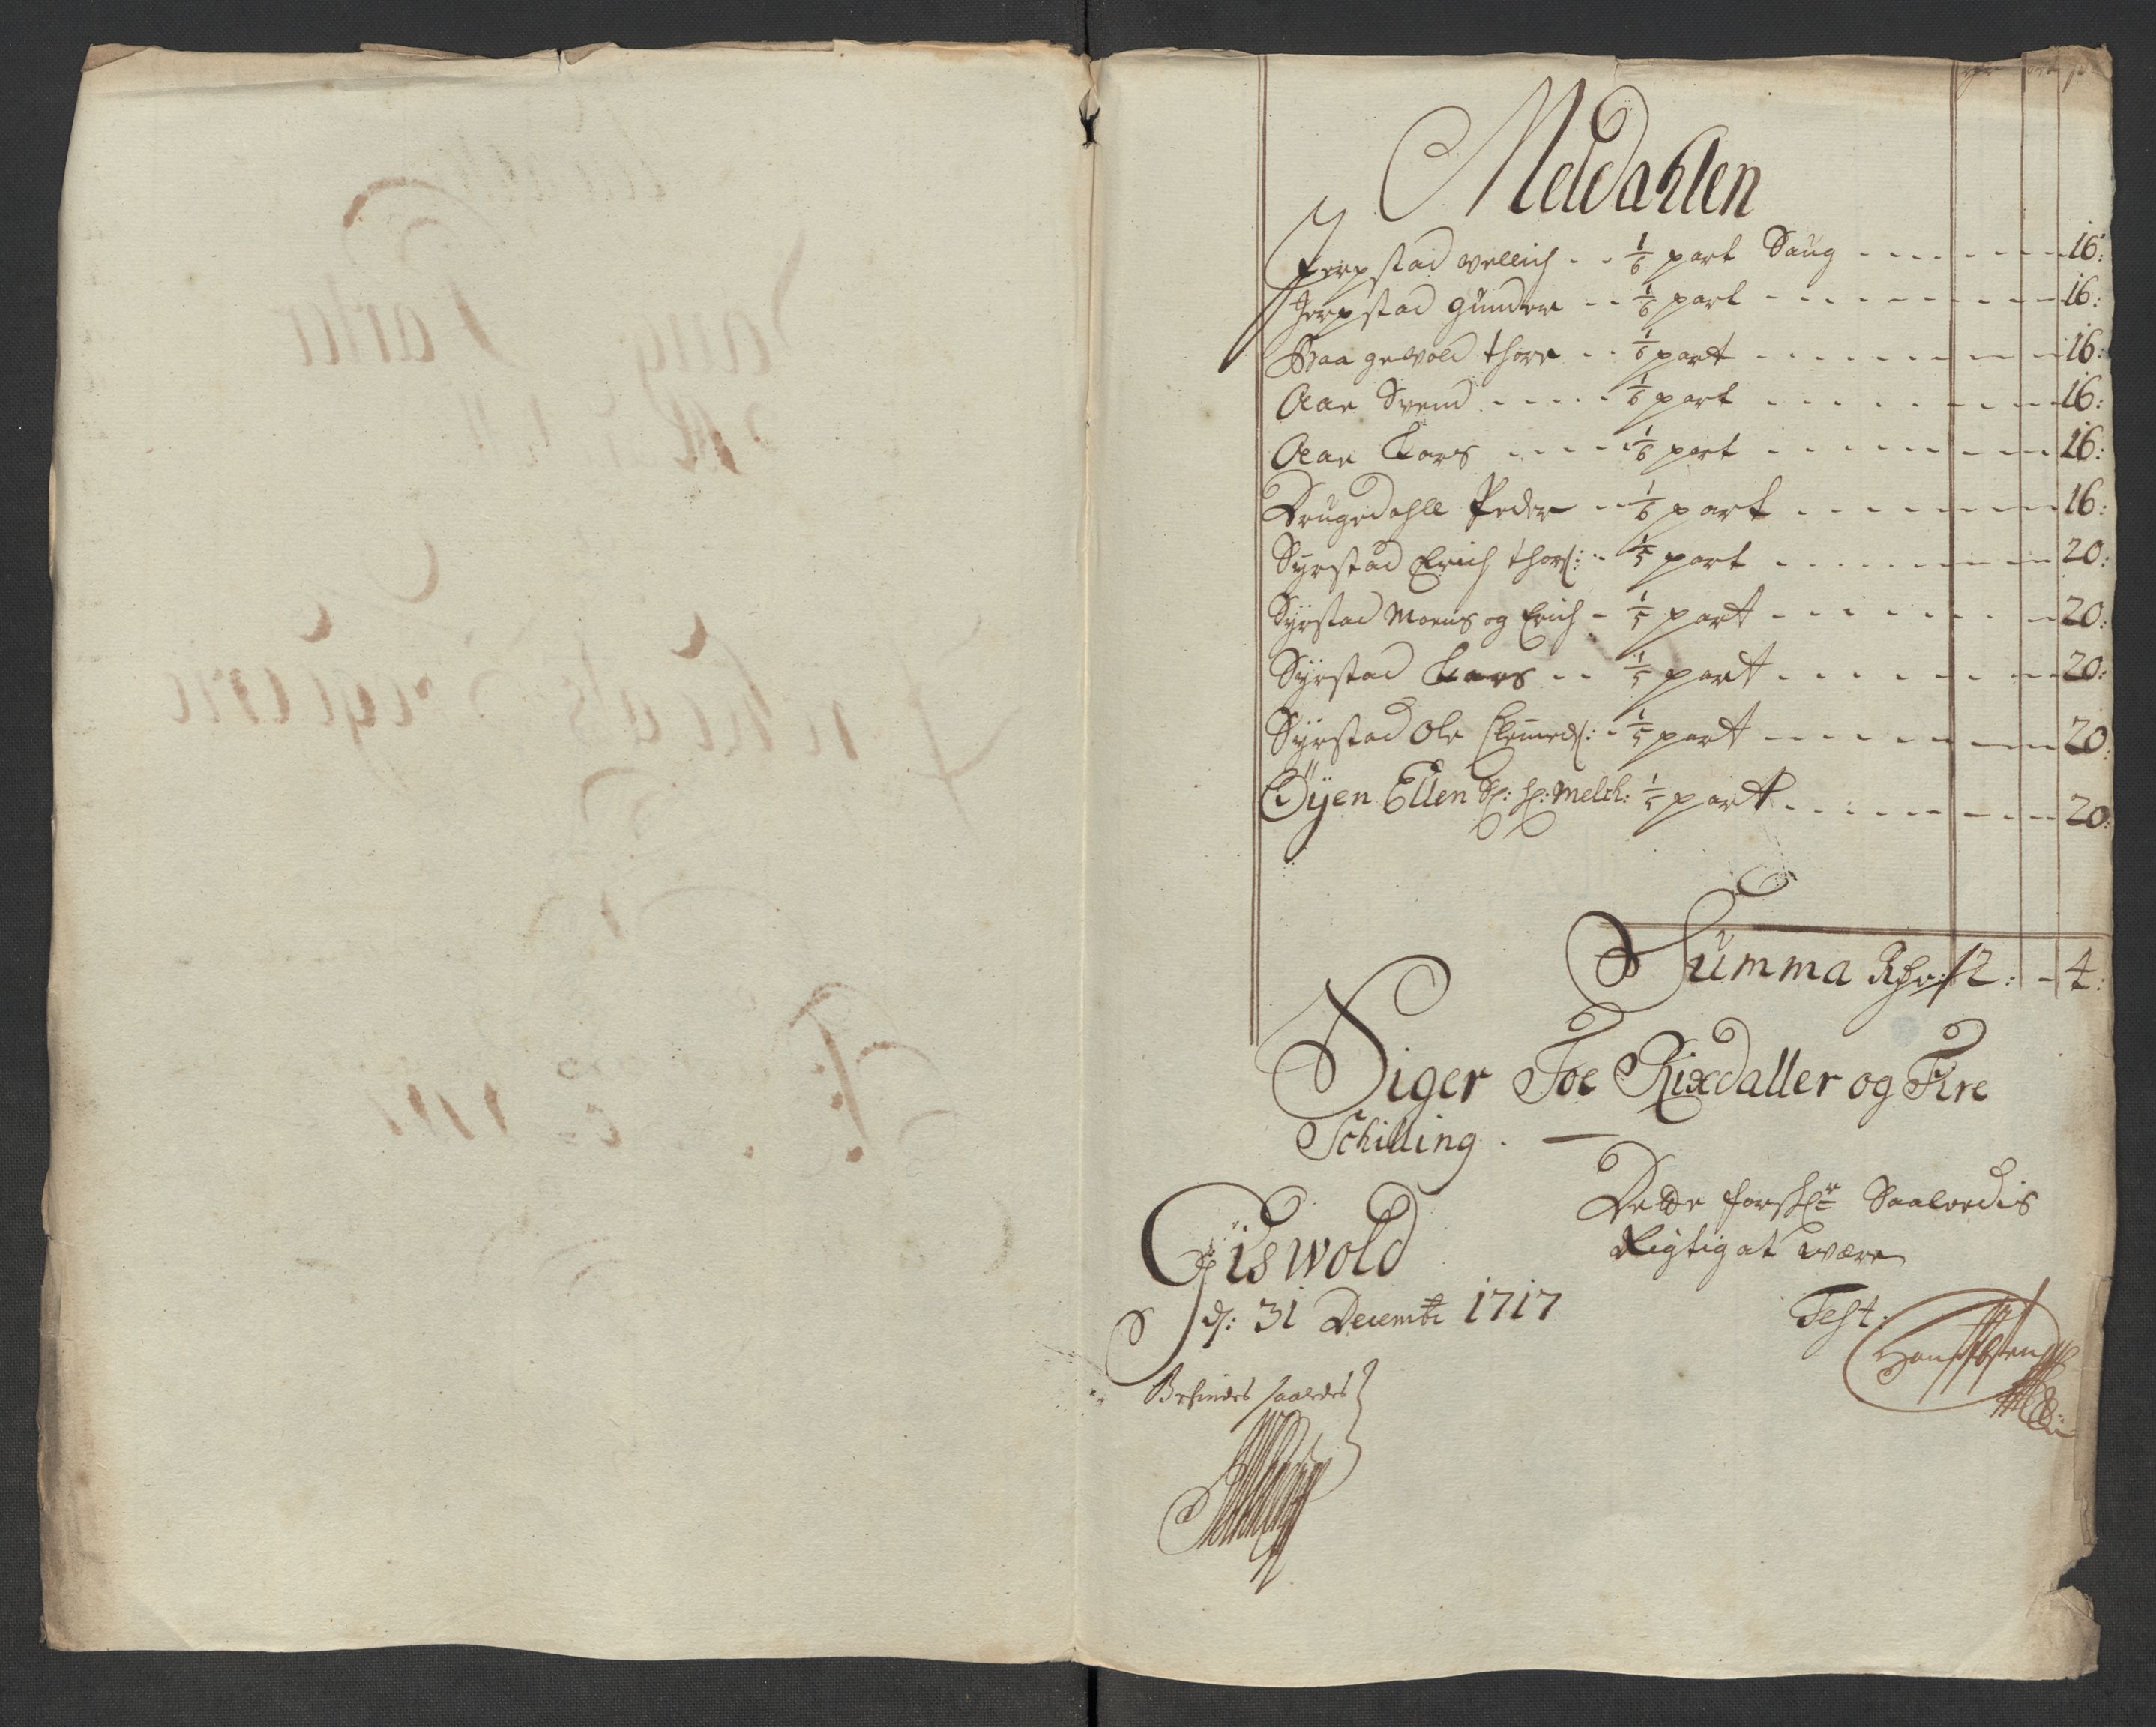 Meldahlen
Jerpstad vellich - - 1/6 part Saug - - - - - - - 16:
Jerpstad gunder - - 1/6 part - - - - - - - - - 16:
Aaa gevold thore - - 1/6 part - - - - - - - 16:
Aae Svend - - - - - 1/6 part - - - - - - - - 16:
Aae Lars - - - - 1/6 part - - - - - - - - 16:
Drugedahll Peder - - 1/6 part - - - - - - - 16:
Syrstad Erich thors: - 1/5 part - - - - - - - - 20:
Syrstad Moens og Erich - 1/5 part - - - - - - - 20:
Syrstad Lars - - 1/5 part - - - - - - - 20:
Syrstad Ole Clemeds: - 1/5 part - - - - - - - 20:
Øyen Ellen Sl: H: Melch: 1/5 part - - - - - - - 20:
Summa Rdr: 12: - 4:
Siger Toe Rixdaller og Fire
Schilling . —
Dette forskr Saaledis
Rigtig at være
Giswold
d: 31 Decembr 1717
Test:
Befindes saaledes